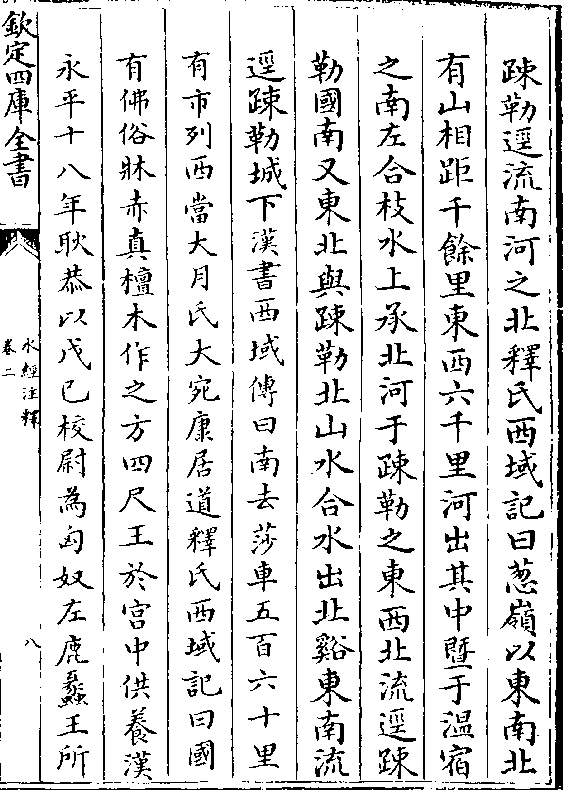 疎勒逕流南河之北釋氏西域記曰葱嶺以東南北
有山相距千餘里東西六千里河出其中暨于溫宿
之南左合枝水上承北河于疎勒之東西北流逕疎
勒國南又東北與疎勒北山水合水出北谿東南流
逕疎勒城下漢書西域傳曰南去莎車五百六十里
有市列西當大月氏大宛康居道釋氏西域記曰國
有佛俗牀赤真檀木作之方四尺王於宮中供養漢
永平十八年耿恭以戊己校尉為匈奴左鹿蠡王所
欽定四庫全書
水經注釋
卷二
八